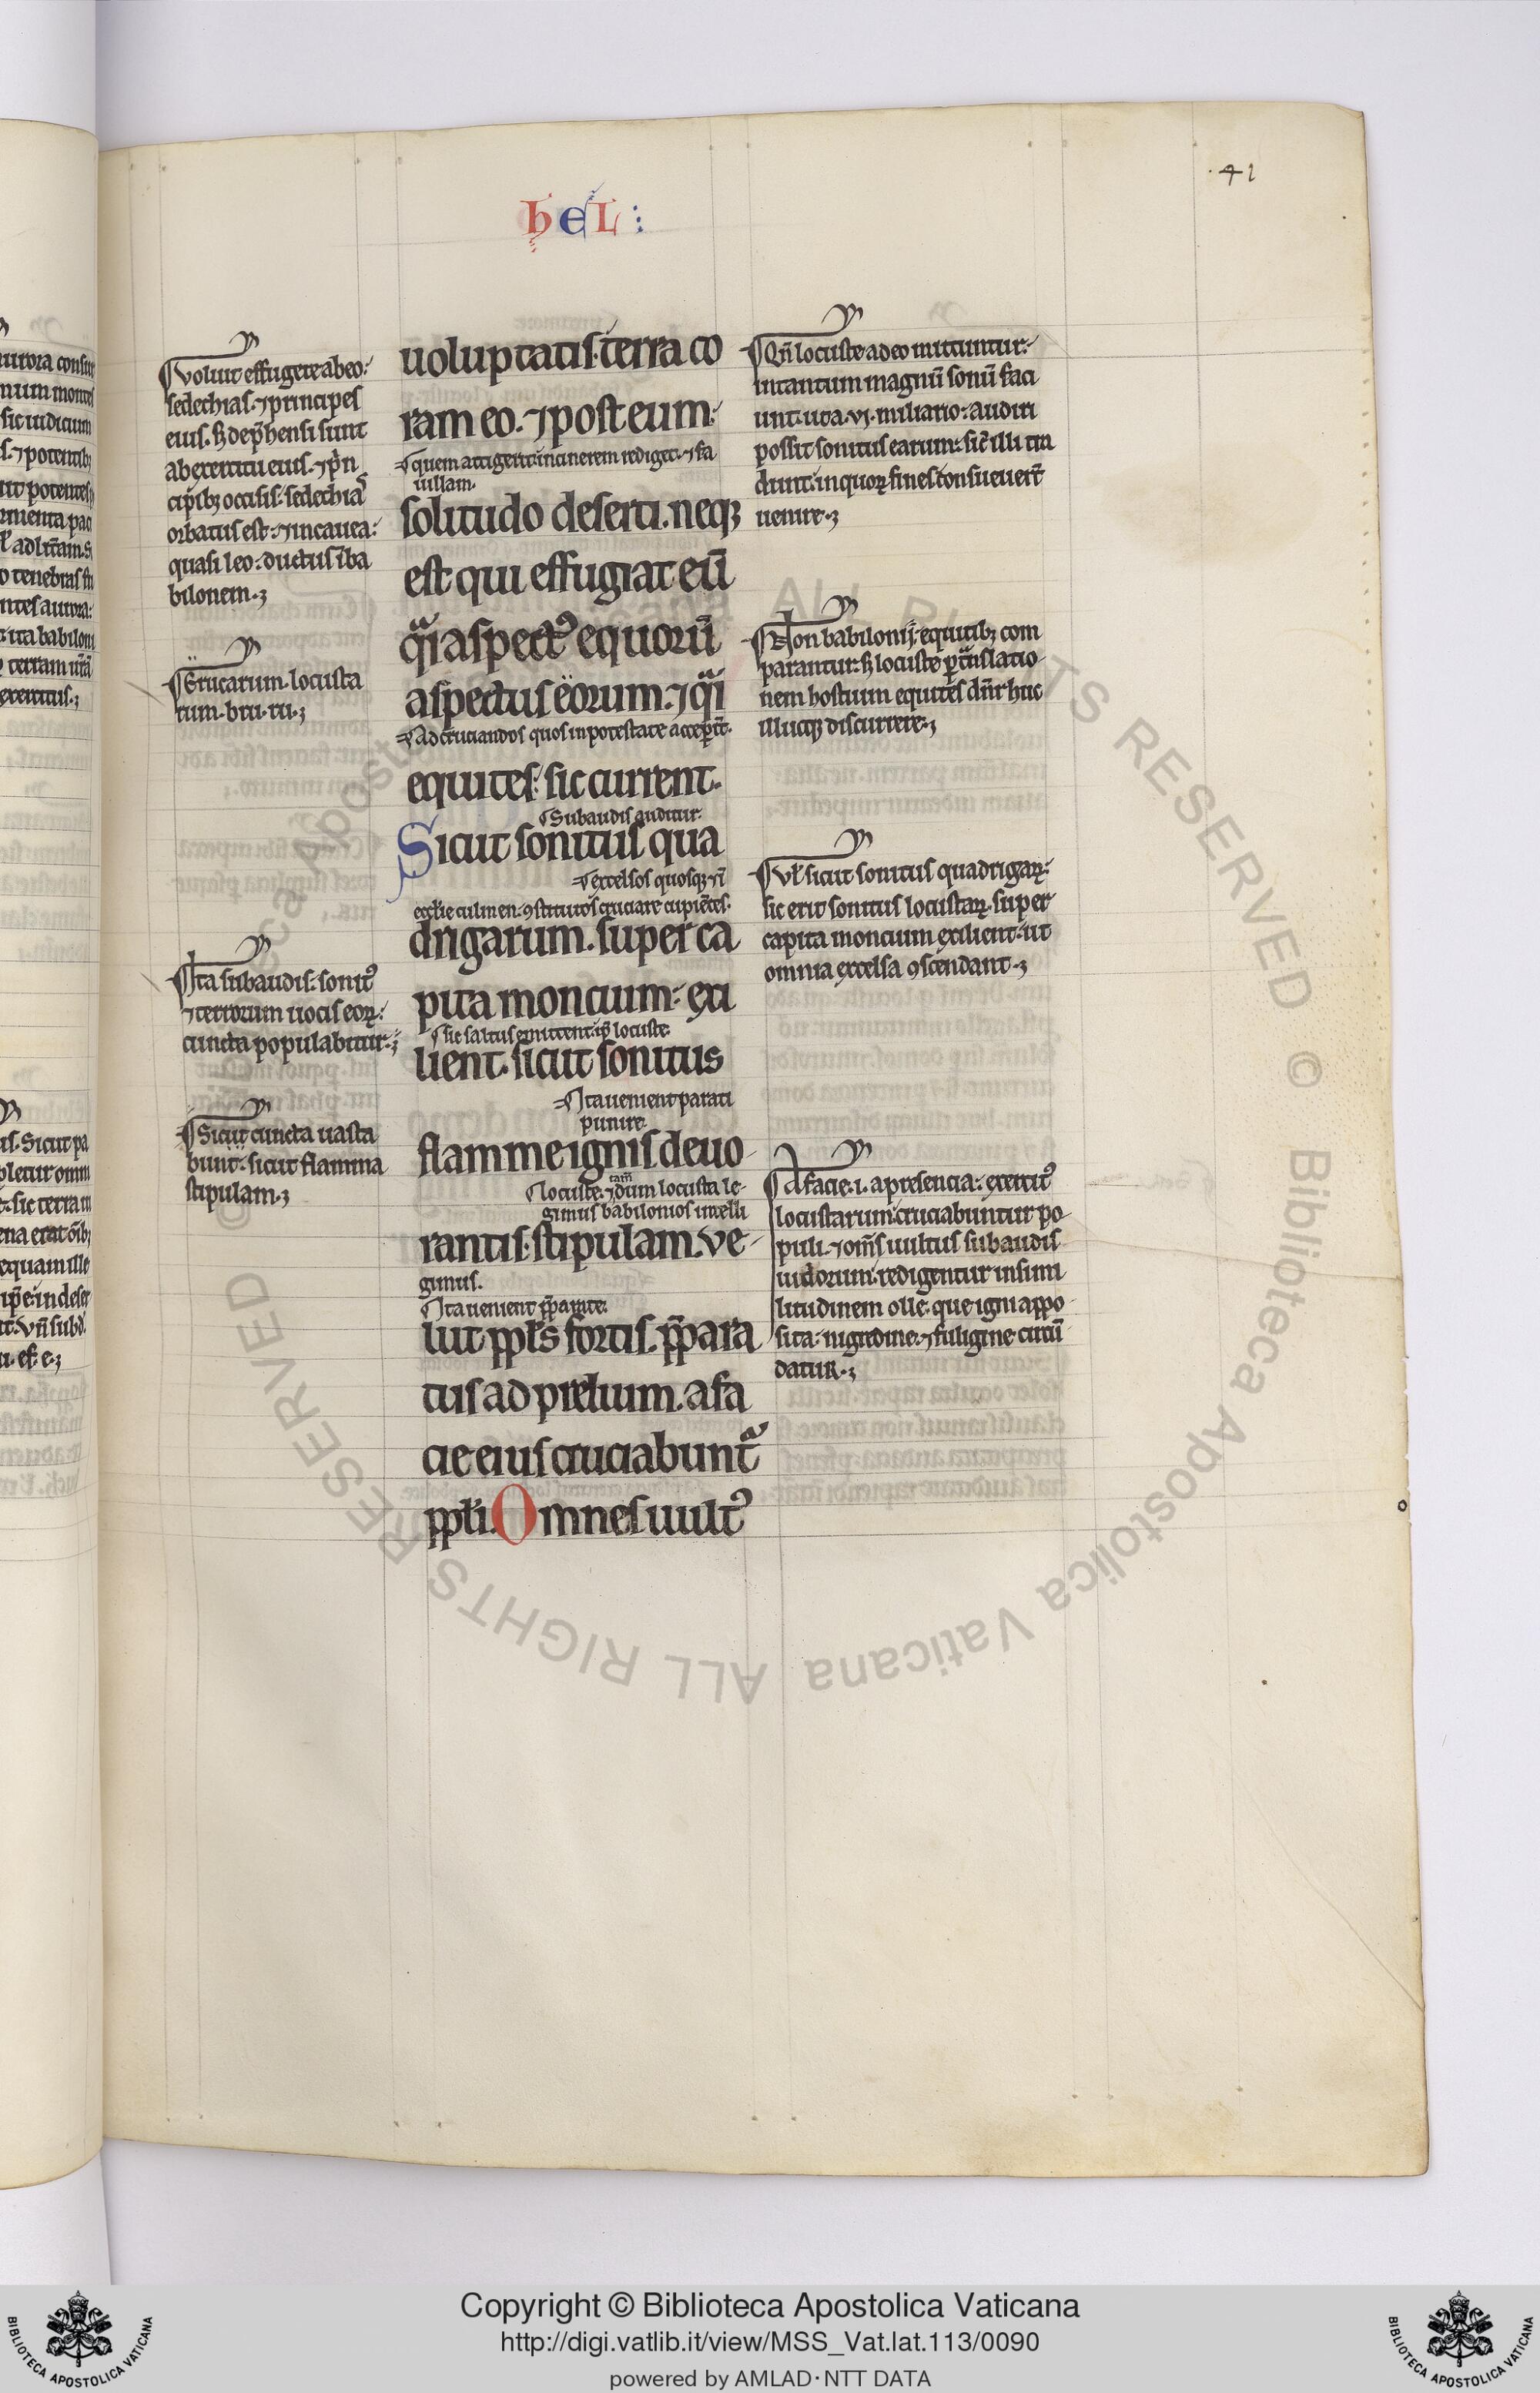 41
hEL:
¶Voluit effugere ab eo:
sedechias. ⁊ principes
eius. ꝫ dep̄hensi sunt
ab exercitu eius. ⁊ p̄n
cipibꝫ occisis: sedechias
orbatus est: ⁊ in cauea:
quasi leo: ductus ī ba
bilonem.
¶Erucarum. locusta
rum. bru. ru.
¶Ita subaudis: sonitꝰ
⁊ terrorum uocis eoꝝ:
cuncta populabitur:
¶Sicut cuncta uasta
bunt: sicut flamma
stipulam.
uoluptatis: terra co
ram eo. ⁊ post eum:
¶quem attigerit: in cinerem rediget. ⁊ fa
uillam.
solitudo deserti. neqꝫ
est qui effugiat eū
qͣi aspectꝰ equorū
aspectus eorum. ⁊ qͣi
¶Ad cruciandos quos in potestate acceper̄t.
equites: sic current.
¶Subaudis auditur.
Sicut sonitus qua
¶excelsos quosqꝫ ⁊ ī
eccl̄ie culmen: ꝯstitutos cruciare cupiētes.
drigarum. super ca
pita moncium: exi
¶sic saltus emittent: ip̄e locuste.
lient. sicut sonitus
¶Ita uenient parati
punire.
flamme ignis deuo
¶locuste. ⁊ dum locusta le
tam̄
gimus babilonios intelli
rantis: stipulam. Ve
gimus.
¶Ita uenient p̄parate.
lut ppl̄s fortis. p̄para
tus ad prelium. a fa
cie eius cruciabuntͣ
ppl̄i. Omnes uultꝰ
¶Qn̄ locuste adeo mittuntur:
in tantum magnū sonū faci
unt: ut a .vi. miliario: audiri
possit sonitus earum: sic̄ illi tra
dunt: in quoꝝ fines consueuer̄t
uenire.
¶Non babilonij: equitibꝫ com
parantur: ꝫ locuste p̱ tͣnslatio
nem hostium equites dn̄r huc
illucqꝫ discurrere.
¶Vl̄ sicut sonitus quadrigaꝝ:
sic erit sonitus locustaꝝ. super
capita moncium exilient: ut
omnia excelsa ꝯscendant.
¶A facie .i. a presencia: exercitꝰ
locustarum: cruciabuntur po
puli. ⁊ om̄s uultus subaudis
iudeorum: redigentur in simi
litudinem olle: que igni appo
sita: nigredine: ⁊ fuligine circū
datur.
Copyright © Biblioteca Apostolica Vaticana
http://digi.vatlib.it/view/MSS_Vat.lat.113/0090
powered by AMLAD·NTT DATA